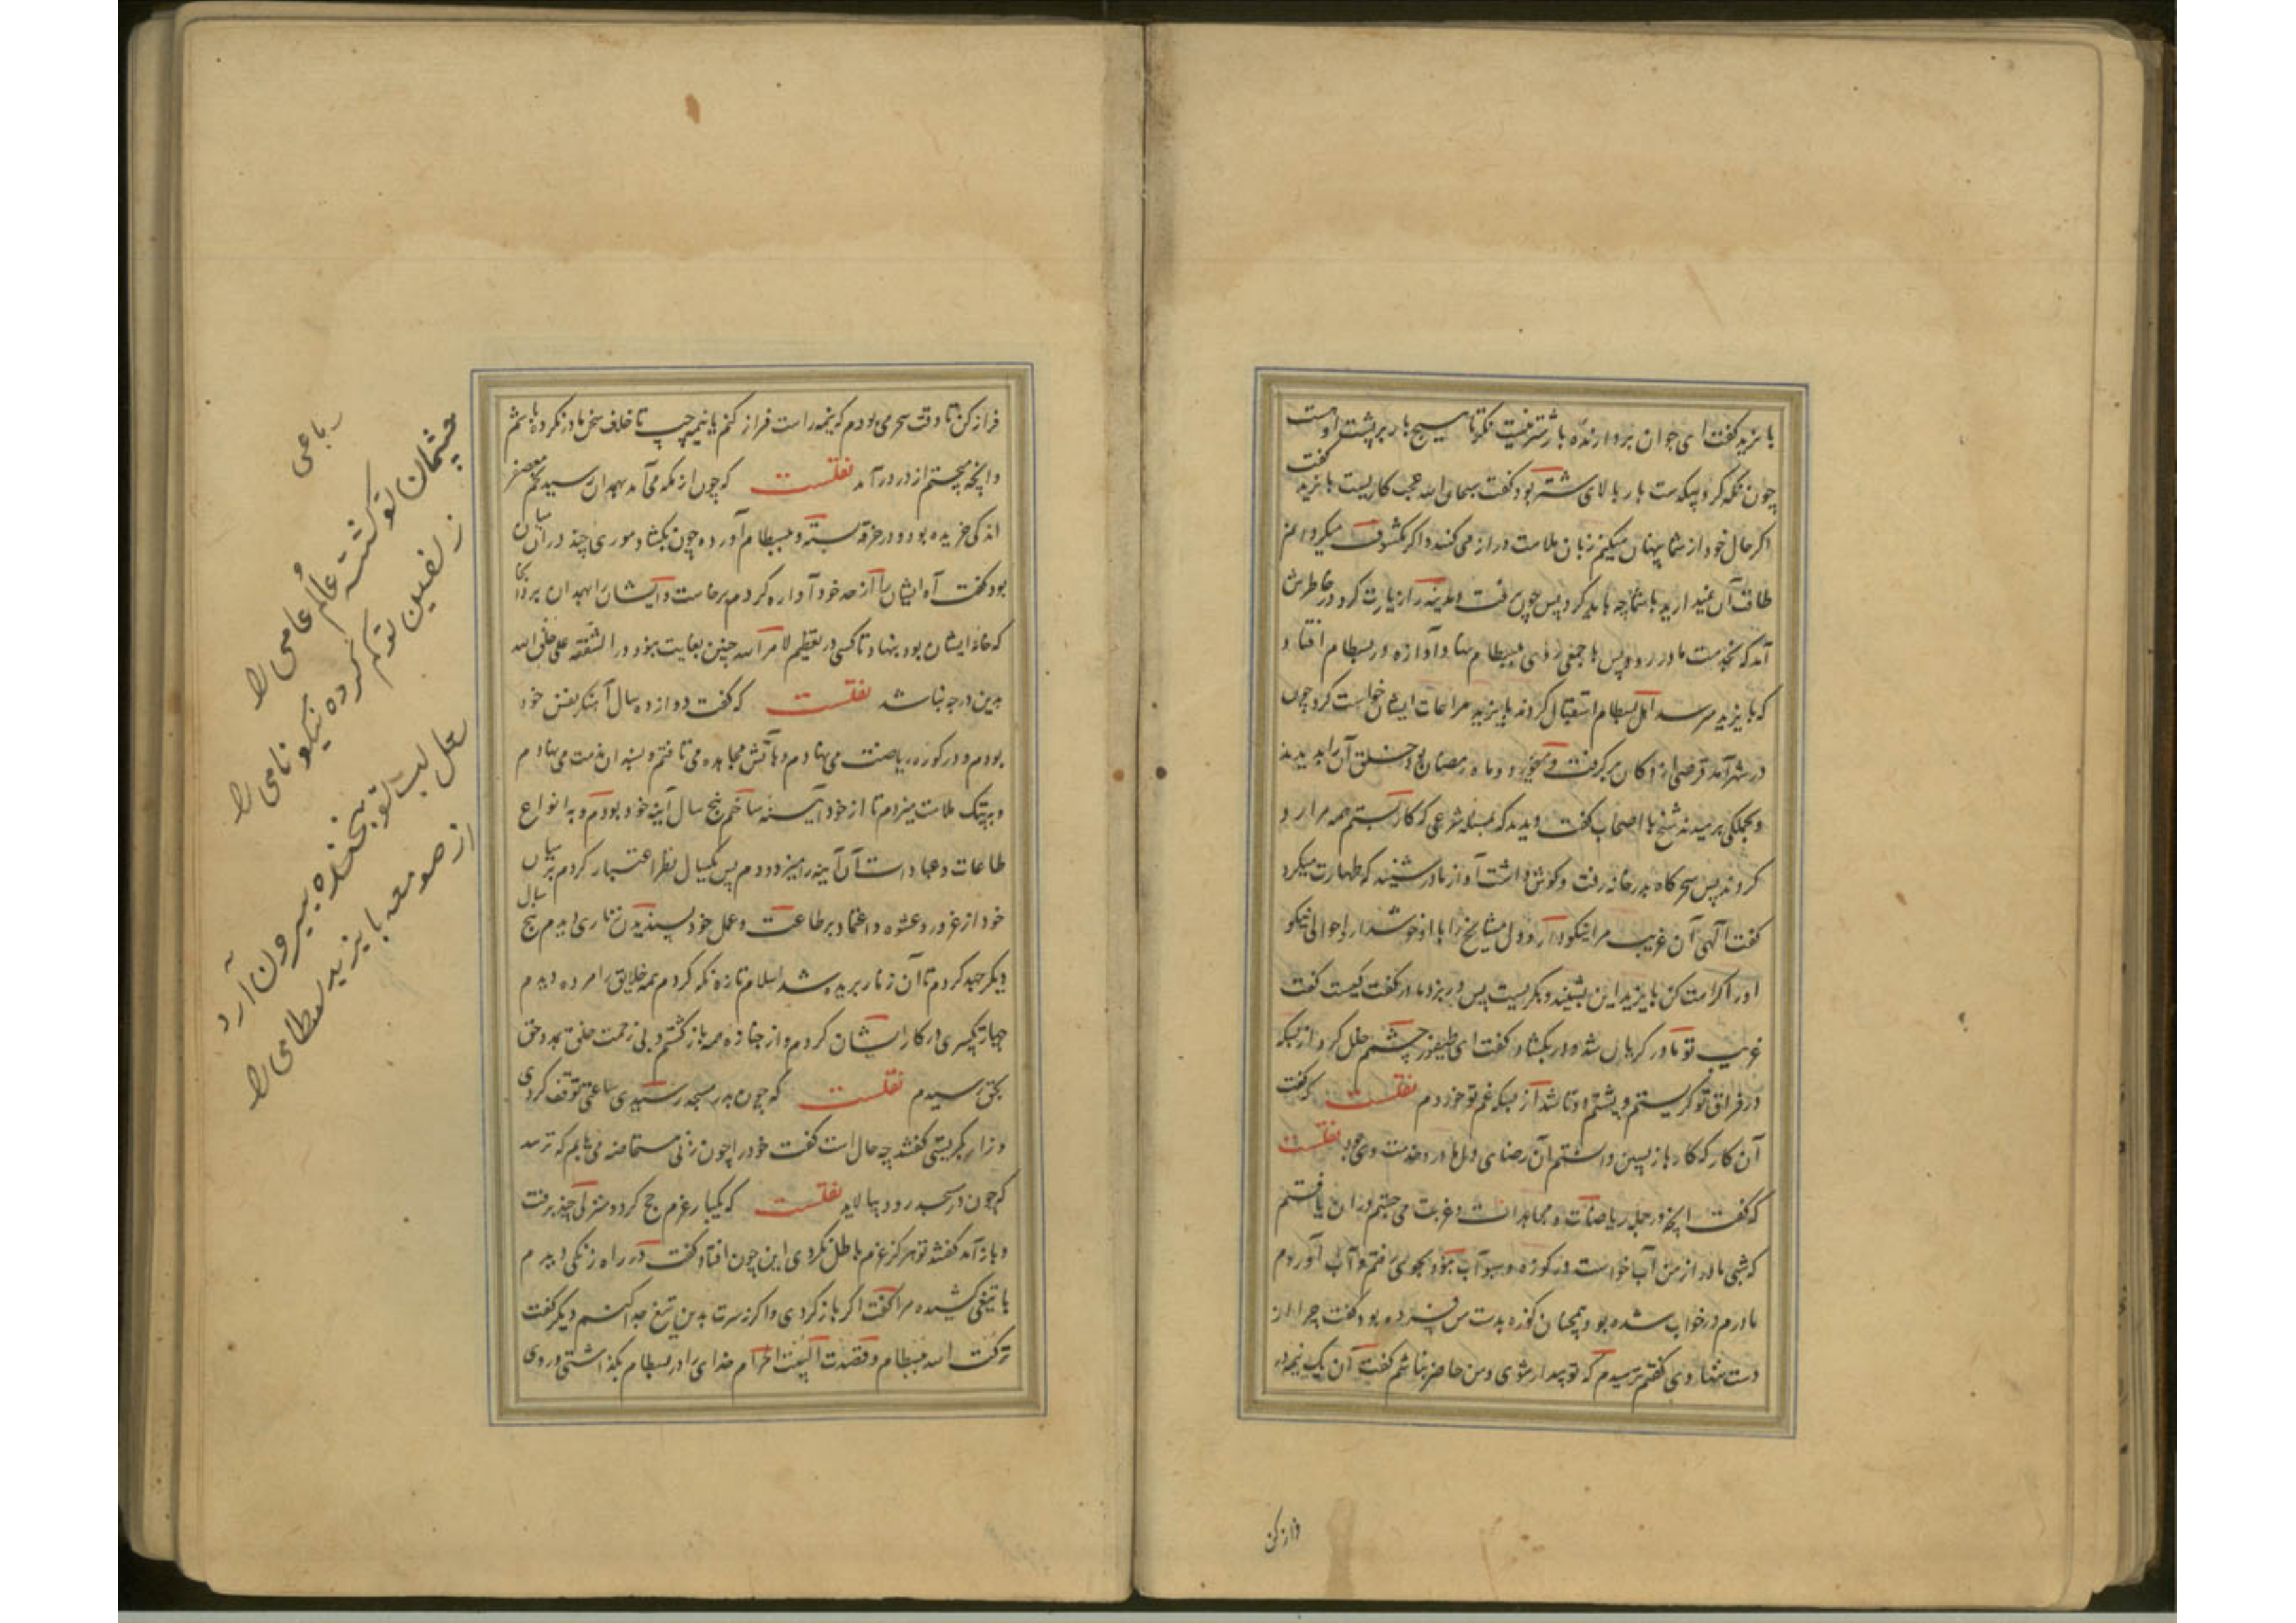 بایزید گفت ای جوان بردارنده بار شتر نیست نکر تا هیچ بار بر پشت او هست
چون نکه کرد بیکدست بار بالای شتر بود گفت سبحان الله عجب کاریست بایزید گفت
اکر حال خود از شما پنهان میکنم زبان ملامت دراز می کنند و اکر مکشوف میکردانم
طاقت آن نمیدارید با شما چه باید کرد پس چون برفت و مدینه را زیارت کرد در خاطرش
آمد که بخدمت مادر رود پس با جمعی روی ببسطام نهاد و آوازه در بسطام افتاد
که بایزید میرسد اهل بسطام استقبال کردند بایزید مراعات ایشان خواست کرد چون
در شهر آمد قرصی از دکان برکرفت و میخورد و ماه رمضان بود خلق آن را بدیدند
و بجملکی برمیدند شیخ با اصحاب گفت دیدید که بمسئله شرعی که کار بستم همه مرا رد
کردند پس سحرکاه بدر خانه رفت و کوش داشت آواز مادر شنید که طهارت میکرد
گفت الهی آن غریب مرا نیکو دار و دل مشایخ را با او خوش دار و احوال نیکو
او را کرامت کن بایزید این بشنید و بکریست پس در بزد مادر گفت کیست گفت
غریب تو مادر کریان شد و در بکشاد و گفت ای طیفور چشمم خلل کرد از بسکه
در فراق تو کریستم و پشتم دوتا شد از بسکه غم تو خوردم نقلست که گفت
آن کار که کار باز پسین دانستم آن رضای دل مادر و خدمت وی بود نقلست
که گفت انچه در جمله ریاضات و مجاهدات و غربت می جستم در آن یافتم
که شبی مادر از من آب خواست در کوزه و سبو آب نبود بجوی رفتم و آب آوردم
مادرم در خواب شده بود همچنان کوزه بدست من فسرده بود گفت چرا از
دست ننهادی گفتم ترسیدم که تو بیدار شوی و من حاضر نباشم گفت آن یک نیمه در
فراز کن
فراز کن تا وقت سحر می بودم که نیمه راست فراز کنم یا نیمه چپ تا خلاف سخن مادر نکرده باشم
و انچه میجستم از در درآمد نقلست که چون از مکه می آمد بهمدان رسید تخم معصفر
اندکی خریده بود و در خرقه بسته و ببسطام آورده چون بکشاد موری چند در آن میان
بود گفت آه ایشان را از حد خود آواره کردم برخاست و ایشان را بهمدان برد آنجا
که خانه ایشان بود بنهاد تا کسی در تعظیم لامر الله چنین بغایت نبود در الشفقه علی خلق الله
بدین درجه نباشد نقلست که گفت دوازده سال آهنکر نفس خود
بودم و در کوزه ریاضت می نهادم و بآتش مجاهده می تافتم و بسندان مذمت می نهادم
و بپتک ملامت میزدم تا از خود آیینه ساختم پنج سال آینه خود بودم و به انواع
طاعات و عبادات آن آینه را میزدودم پس یکسال نظر اعتبار کردم بر میان
خود از غرور و عشوه و اعتماد بر طاعت و عمل خود پسندیدن زناری دیدم پنج سال
دیکر جهد کردم تا آن زنار بریده شد اسلام تازه نکه کردم همه خلایق را مرده دیدم
چهار تکبیر در کار ایشان کردم و از جنازه همه بازکشتم و بی زحمت خلق بمدد حق
بحق رسیدم نقلست که چون بدر مسجد رسیدی ساعتی توقف کردی
و زار بکریستی گفتند چه حال است گفت خود را چون زنی مستحاضه می یابم که ترسد
که چون در مسجد رود بیالاید نقلست که یکبار عزم حج کرد و منزلی چند برفت
و بازآمد گفتند تو هرکز عزم باطل نکردی این چون افتاد گفت در راه زنکی دیدم
با تیغی کشیده مرا گفت اکر بازکردی و اکر نه سرت بدین تیغ جدا کنم دیکر گفت
ترکت الله ببسطام و قصدت البیت الحرام خدای را در بسطام بکذاشتی و روی
رباعی
چشمان تو کشته عالم عامی را
زلفین تو کم کرده نیکو نامی را
لعل لب تو بخنده بیرون آرد
از صومعه بایزید بسطامی را